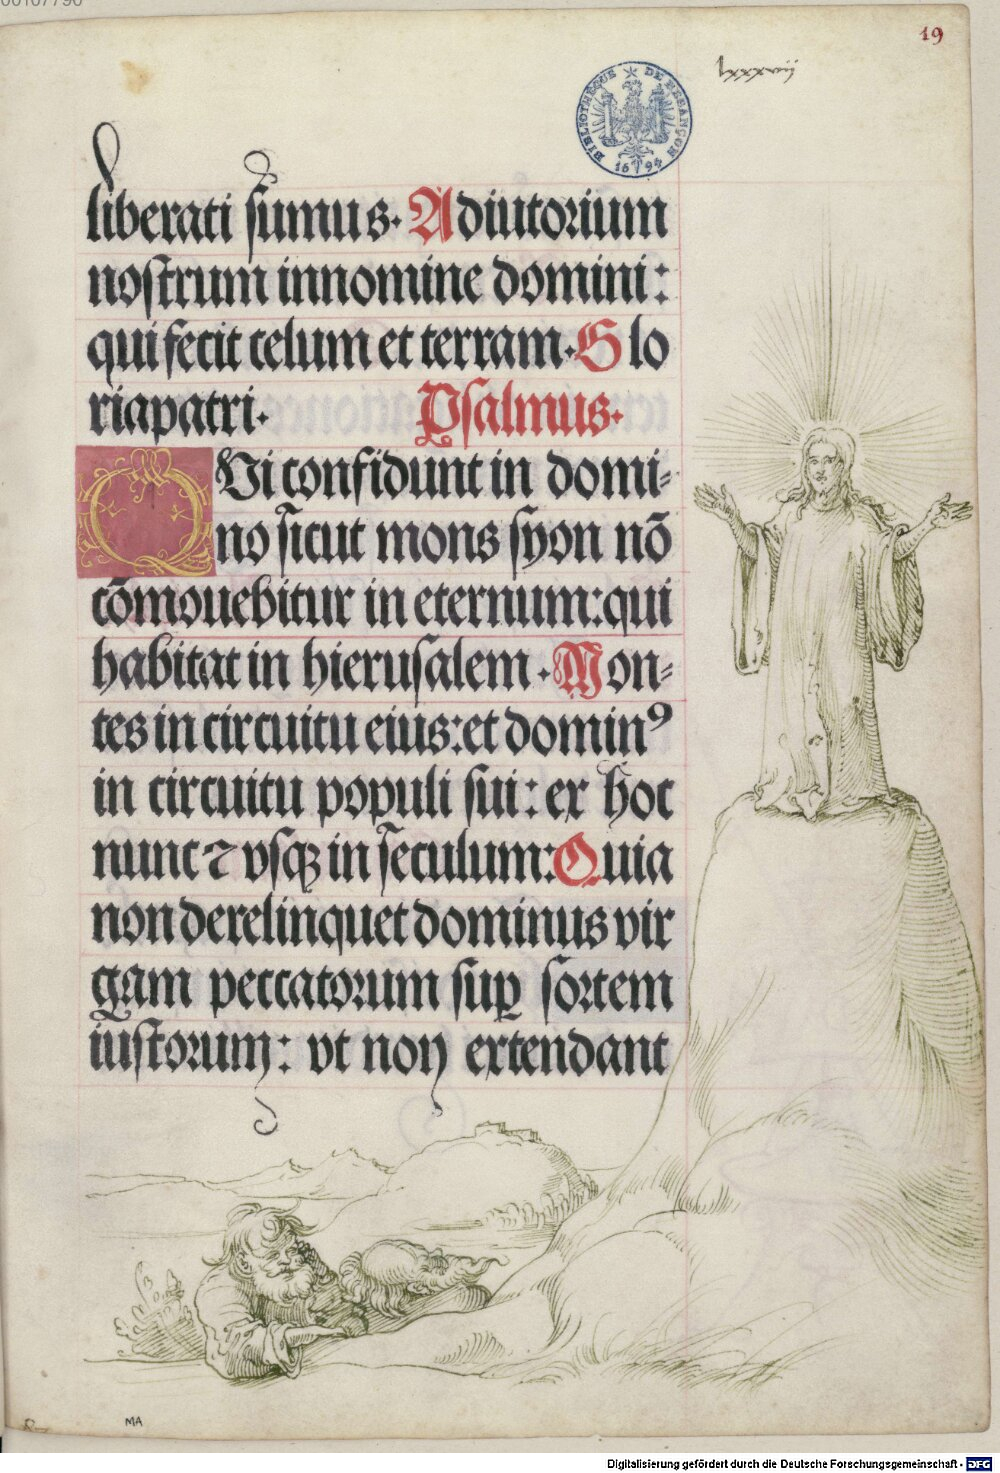 00107790
19
lxxxvij
BIBLIOTHEQUE DE BESANÇON
1694
liberati sumus. Adiutorium
nostrum in nomine domini:
qui fecit celum et terram. Glo
ria patri. Psalmus.
QVi confidunt in domi-
no sicut mons syon nō
cōmouebitur in eternum: qui
habitat in hierusalem. Mon-
tes in circuitu eius: et dominꝰ
in circuitu populi sui: ex hoc
nunc ⁊ vsqꝫ in seculum: Quia
non derelinquet dominus vir
gam peccatorum suꝑ sortem
iustorum: vt non extendant
MA
Digitalisierung gefördert durch die Deutsche Forschungsgemeinschaft - DFG